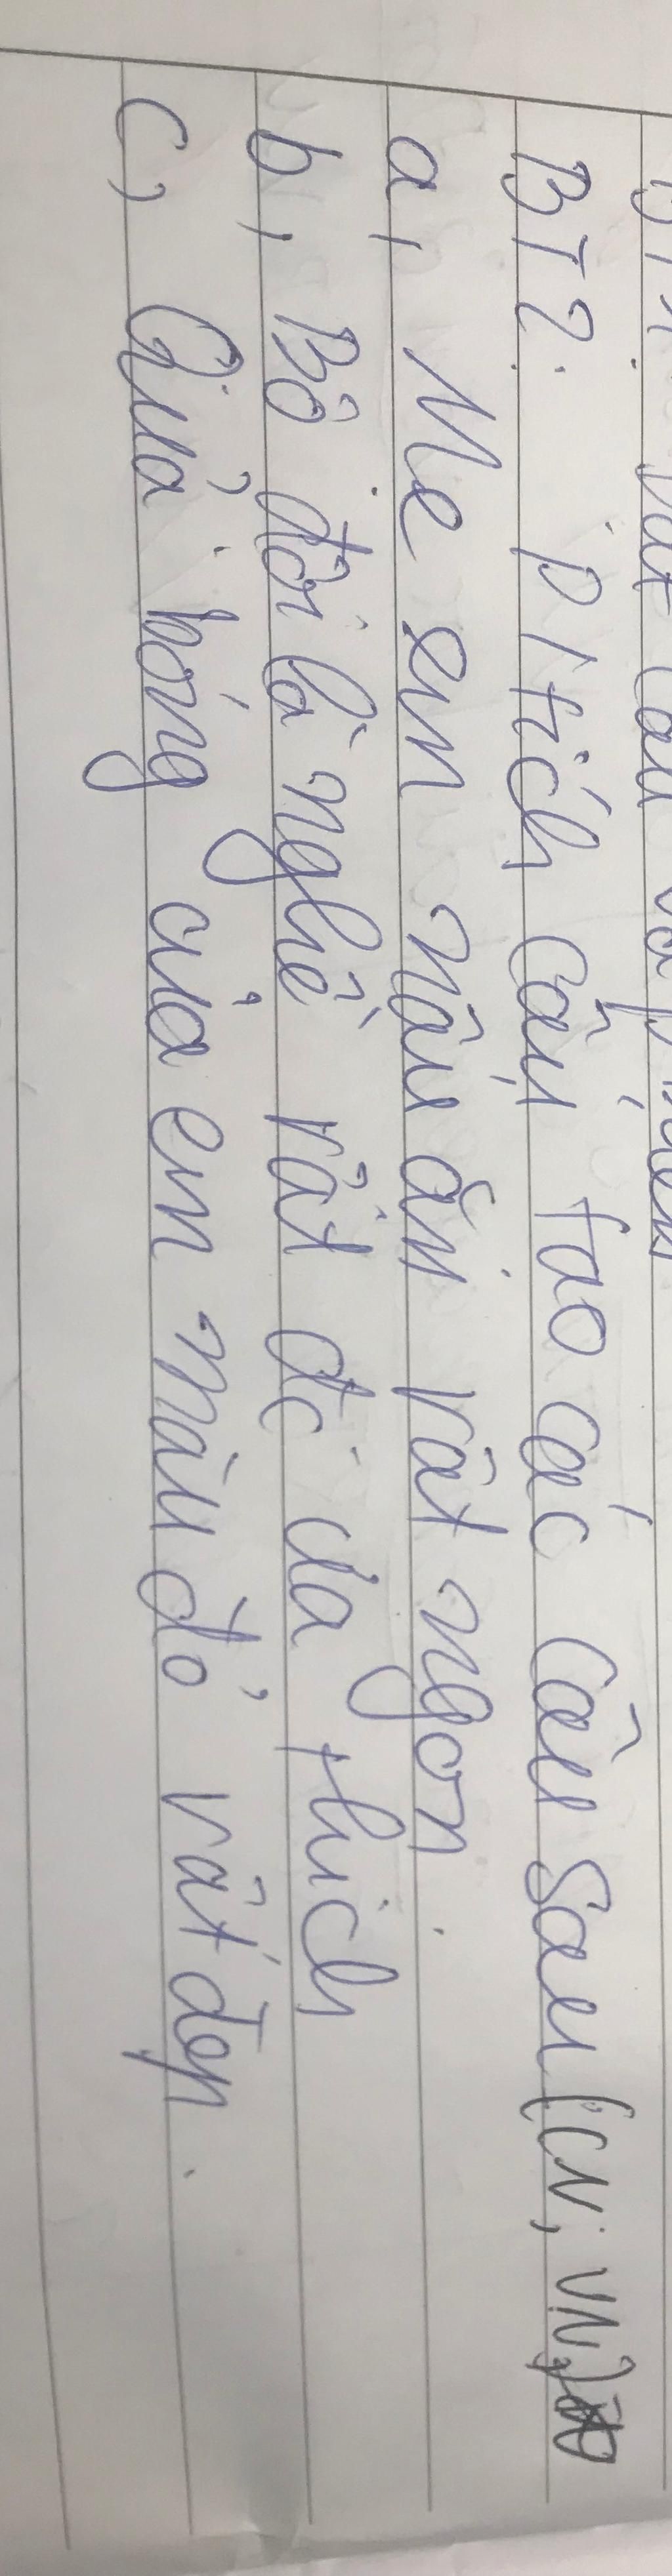 BT2. p/tích cấu tạo các câu sau (CN; VN)
a, Mẹ em nấu ăn rất ngon.
b, Bộ đội là nghề rất đc ưa thích
c, Quả bóng của em màu đỏ rất đẹp.